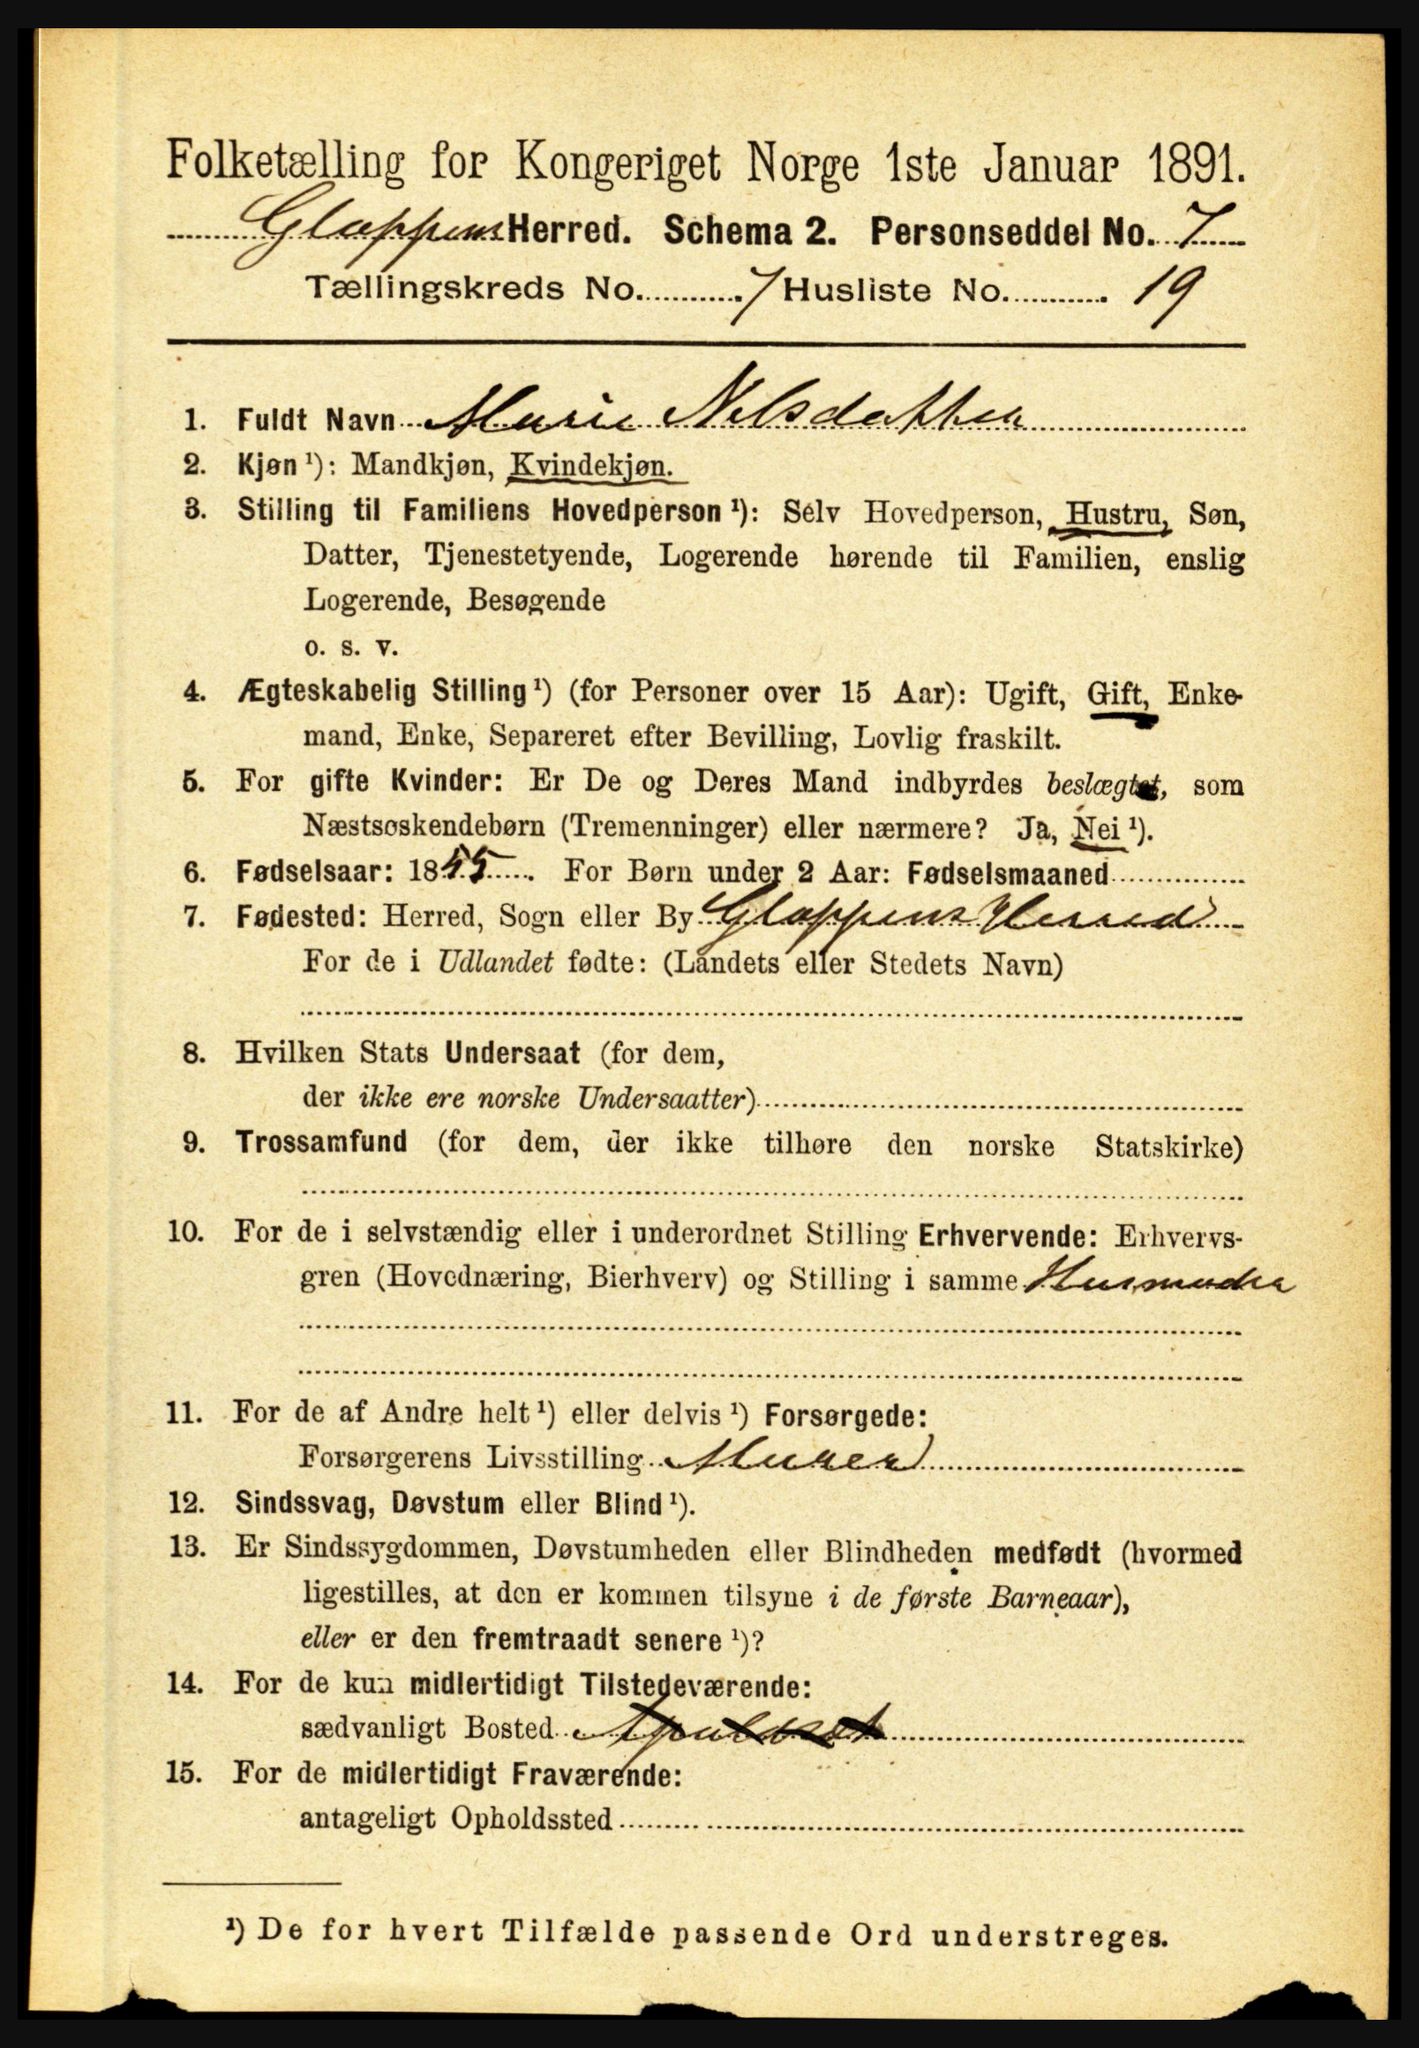 Folketælling for Kongeriget Norge 1ste Januar 1891.
Gloppens Herred. Schema 2. Personseddel No. 7
Tællingskreds No. 7 Husliste No. 19
1. Fuldt Navn Marie Nilsdatter
2. Kjøn ¹): Mandkjøn, Kvindekjøn.
3. Stilling til Familiens Hovedperson ¹): Selv Hovedperson, Hustru, Søn,
Datter, Tjenestetyende, Logerende hørende til Familien, enslig
Logerende, Besøgende
o. s. v.
4. Ægteskabelig Stilling ¹) (for Personer over 15 Aar): Ugift, Gift, Enke-
mand, Enke, Separeret efter Bevilling, Lovlig fraskilt.
5. For gifte Kvinder: Er De og Deres Mand indbyrdes beslægtet, som
Næstsøskendebørn (Tremenninger) eller nærmere? Ja, Nei ¹).
6. Fødselsaar: 1855. For Børn under 2 Aar: Fødselsmaaned
7. Fødested: Herred, Sogn eller By Gloppens Herred
For de i Udlandet fødte: (Landets eller Stedets Navn)
8. Hvilken Stats Undersaat (for dem,
der ikke ere norske Undersaatter)
9. Trossamfund (for dem, der ikke tilhøre den norske Statskirke)
10. For de i selvstændig eller i underordnet Stilling Erhvervende: Erhvervs-
gren (Hovednæring, Bierhverv) og Stilling i samme Husmoder
11. For de af Andre helt ¹) eller delvis ¹) Forsørgede:
Forsørgerens Livsstilling Murer
12. Sindssvag, Døvstum eller Blind ¹).
13. Er Sindssygdommen, Døvstumheden eller Blindheden medfødt (hvormed
ligestilles, at den er kommen tilsyne i de første Barneaar),
eller er den fremtraadt senere ¹)?
14. For de kun midlertidigt Tilstedeværende:
sædvanligt Bosted
15. For de midlertidigt Fraværende:
antageligt Opholdssted
¹) De for hvert Tilfælde passende Ord understreges.